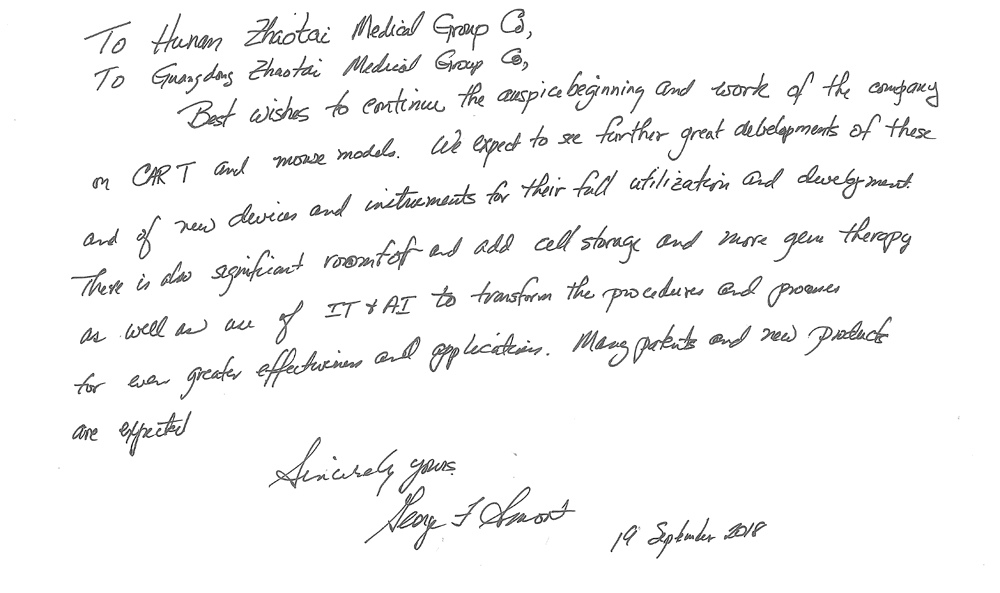 To Hunan Zhaotai Medical Group Co,
To Guangdong Zhaotai Medical Group Co,
Best wishes to continue the auspice beginning and work of the company
on CAR T and mouse models. We expect to see further great debelopments of these
and of new devices and instruments for their full utilization and development.
There is also significant and add cell storage and more gene therapy
as well as use of IT & AI to transform the procedures and processes
for even greater effectiveness and applications. Many patents and new products
are expected
Sincerely yours,
George F Smoot
19 September 2018